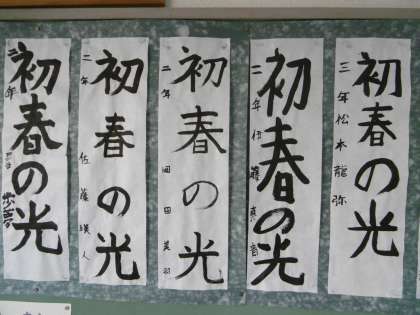 初春の光
三年 松本龍弥
初春の光
二年 伊藤真音
初春の光
二年 田美羽
初春の光
二年 佐藤瑛人
初春の光
二年